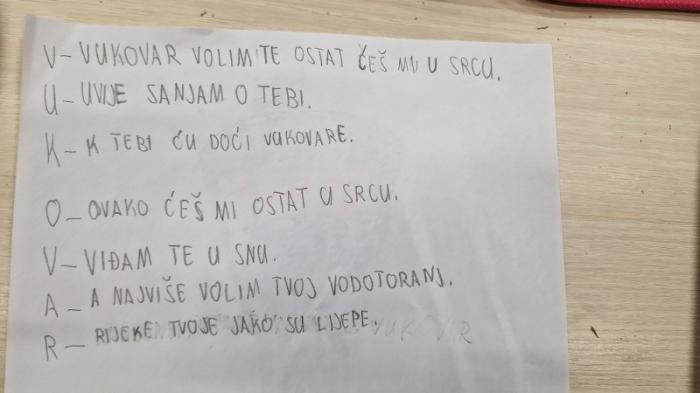 V - VUKOVAR VOLIM TE OSTAT ĆEŠ MI U SRCU.
U - UVIJE SANJAM O TEBI.
K - K TEBI ĆU DOĆI VUKOVARE.
O - OVAKO ĆEŠ MI OSTAT U SRCU.
V - VIĐAM TE U SNU.
A - A NAJVIŠE VOLIM TVOJ VODOTORANJ.
R - RIJEKE TVOJE JAKO SU LIJEPE.